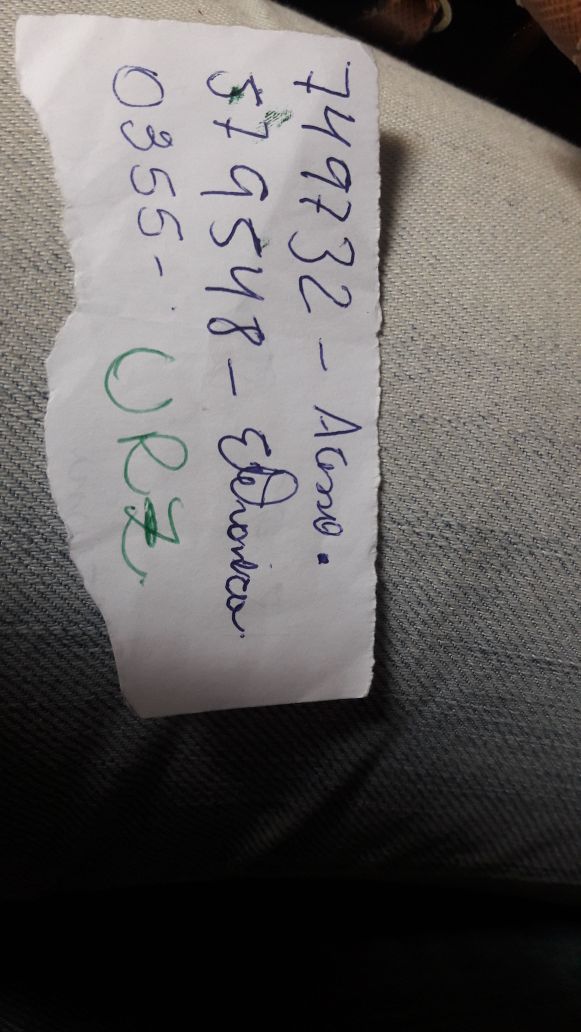 749732 - Acesso.
579548 - Eletronica
0355- URZ